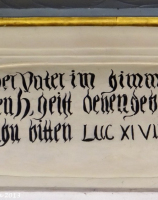 der Vater im himm
en h. geist denen geb
ihn bitten LUC XI V